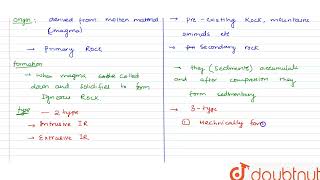 Origin: derived from molten material
(magma)
→ Primary Rock
formation
→ When magma cooled
down and solidifies to form
Igneous Rock
type — 2 type
→ Intrusive IR
→ Extrusive IR
→ Pre-existing Rock, mountains
animals etc
→ Secondary rock
→ they (sediments) accumulate
and after compression they
form sedimentary
→ 3-type
① Mechnically form
doubtnut